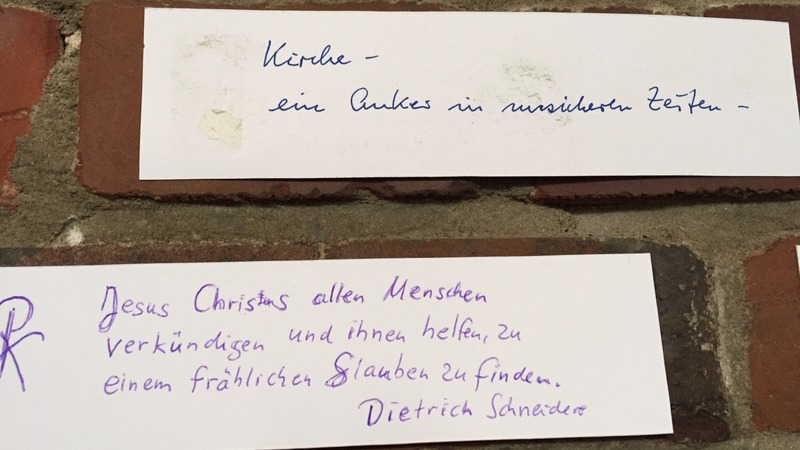 Kirche –
ein Anker in unsicheren Zeiten –
Jesus Christus allen Menschen
verkündigen und ihnen helfen, zu
einem fröhlichen Glauben zu finden.
Dietrich Schneider